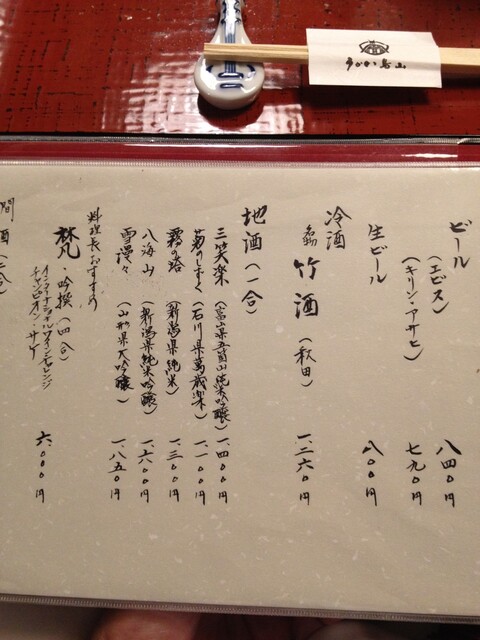 うかい鳥山
ビール
(エビス) 八四〇円
(キリン・アサヒ) 七九〇円
生ビール 八〇〇円
冷酒
竹酒 (秋田) 一、二六〇円
地酒 (一合)
三笑楽 (富山県五箇山純米吟醸) 一、四〇〇円
菊のしずく (石川県萬歳楽) 一、一〇〇円
霧の塔 (新潟県純米) 一、三〇〇円
八海山 (新潟県純米吟醸) 一、六〇〇円
雪漫々 (山形県大吟醸) 一、八五〇円
料理長おすすめ
梵・吟撰 (四合) 六、〇〇〇円
インターナショナルワインチャレンジ
チャンピオン・サケ